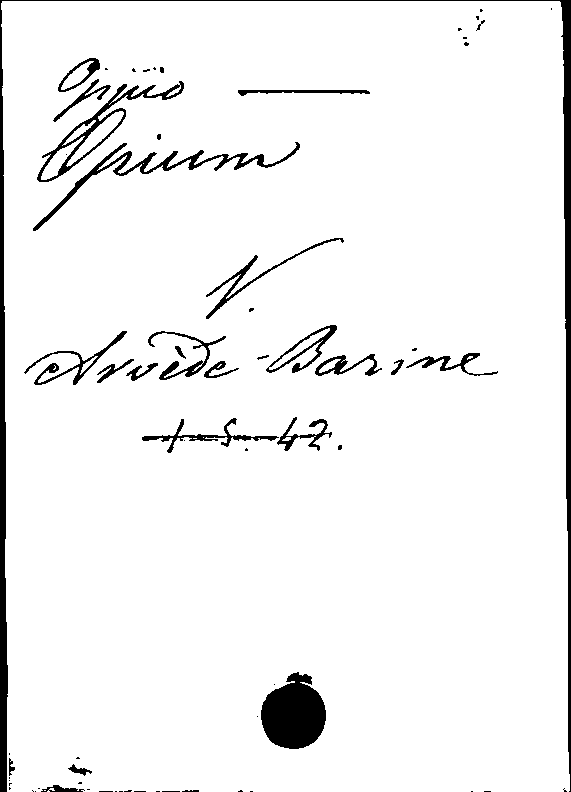 Oppio —
Opium
V.
Arvède-Barine
1-5-42.